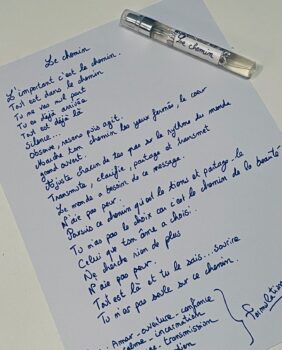 Le chemin
Le chemin.
L'important c'est le chemin..
Tout est dans le chemin
Tu ne vas nul part
Tu es déjà arrivée
Tout est déjà là
Silence...
Observe, ressens puis agit.
Marche ton chemin les yeux fermés, le cœur
grand ouvert.
Ajuste chacun de tes pas sur le rythme du monde
Transmute, clarifie, partage et transmet
Le monde a besoin de ce message.
N'aie pas peur.
Parsuis ce chemin qu'est le tiens et partage-le
Tu n'as pas le choix car c'est le chemin de la beauté
Celui que ton âme a choisi.
Ne cherche rien de plus
N'aie pas peur.
Tout est là et tu le sais... souris
Tu n'es pas seule sur ce chemin.
Amour - ouverture - confiance
calme - incarnation
transmission
Formulation